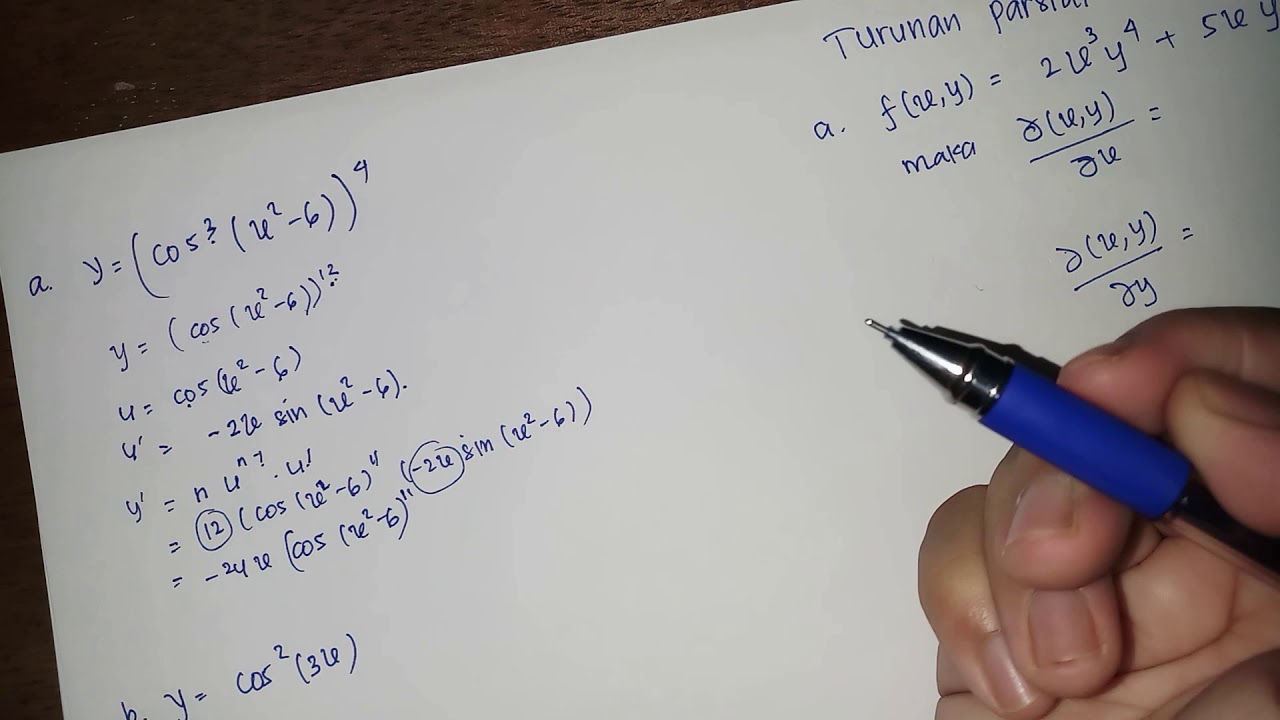 a. y = (cos³ (x² - 6))⁴
y = (cos (x² - 6))¹²
u = cos (x² - 6)
u' = -2x sin (x² - 6).
y' = n uⁿ⁻¹ . u'
= 12 (cos (x² - 6)¹¹ (-2x sin (x² - 6))
= -24x (cos (x² - 6)¹¹
b. y = cos² (3x)
Turunan Parsial
a. f(x, y) = 2x³y⁴ + 5x y
maka ∂(x, y)/∂x =
∂(x, y)/∂y =